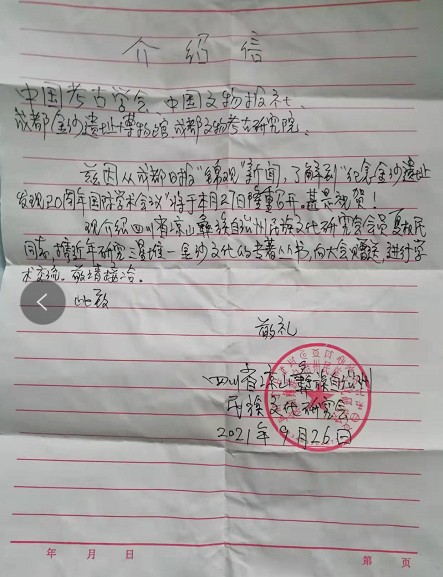 介绍信
中国考古学会、中国文物报社、
成都金沙遗址博物馆、成都文物考古研究院:
兹因从成都日报"锦观"新闻,了解到"纪念金沙遗址
发现20周年国际学术会议"将于本月27日隆重召开。甚是祝贺!
现介绍四川省凉山彝族自治州民族文化研究会会员
同志,携近年研究三星堆—金沙文化的专著丛书,向大会赠送,进行学
术交流。敬请接洽。
此致
敬礼
四川省凉山彝族自治州
民族文化研究会
2021年9月26日
年 月 日
第 页